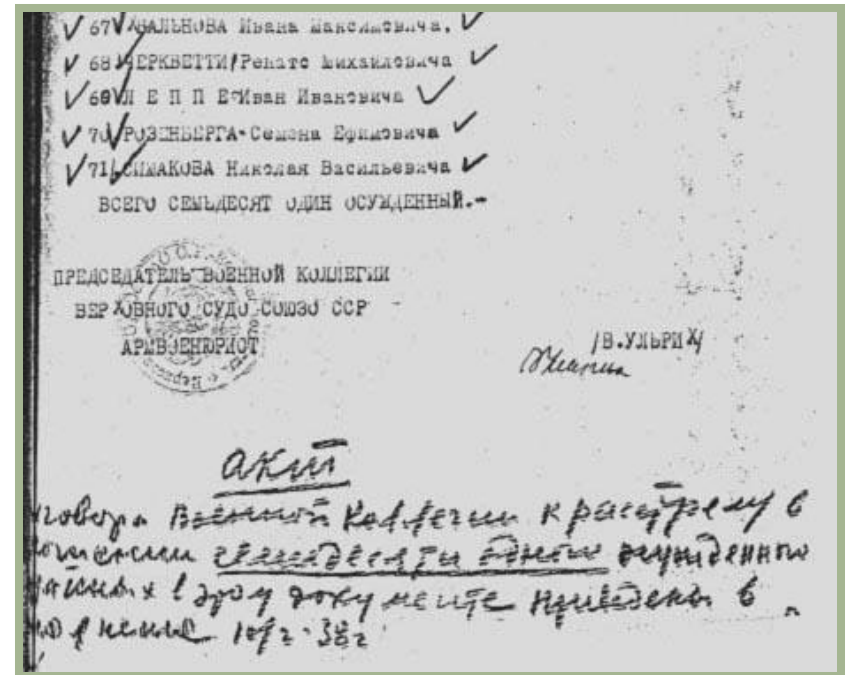 67 ХВАЛЬНОВА Ивана Максимовича.
68 ЧЕРКВЕТТИ Ренато Михайловича
69 Л Е П П Е Иван Ивановича
70 РОЗЕНБЕРГА-Семена Ефимовича
71 СИМАКОВА Николая Васильевича
ВСЕГО СЕМЬДЕСЯТ ОДИН ОСУЖДЕННЫЙ.-
ПРЕДСЕДАТЕЛЬ ВОЕННОЙ КОЛЛЕГИИ
ВЕРХОВНОГО СУДО СОЮЗО ССР
АРМВОЕНЮРИСТ
/В.УЛЬРИХ/
акт
говора Военной Коллегии к расстрелу в
ношении семидесяти одного осужденно
занных в этому документе приведены в
полнение 38г